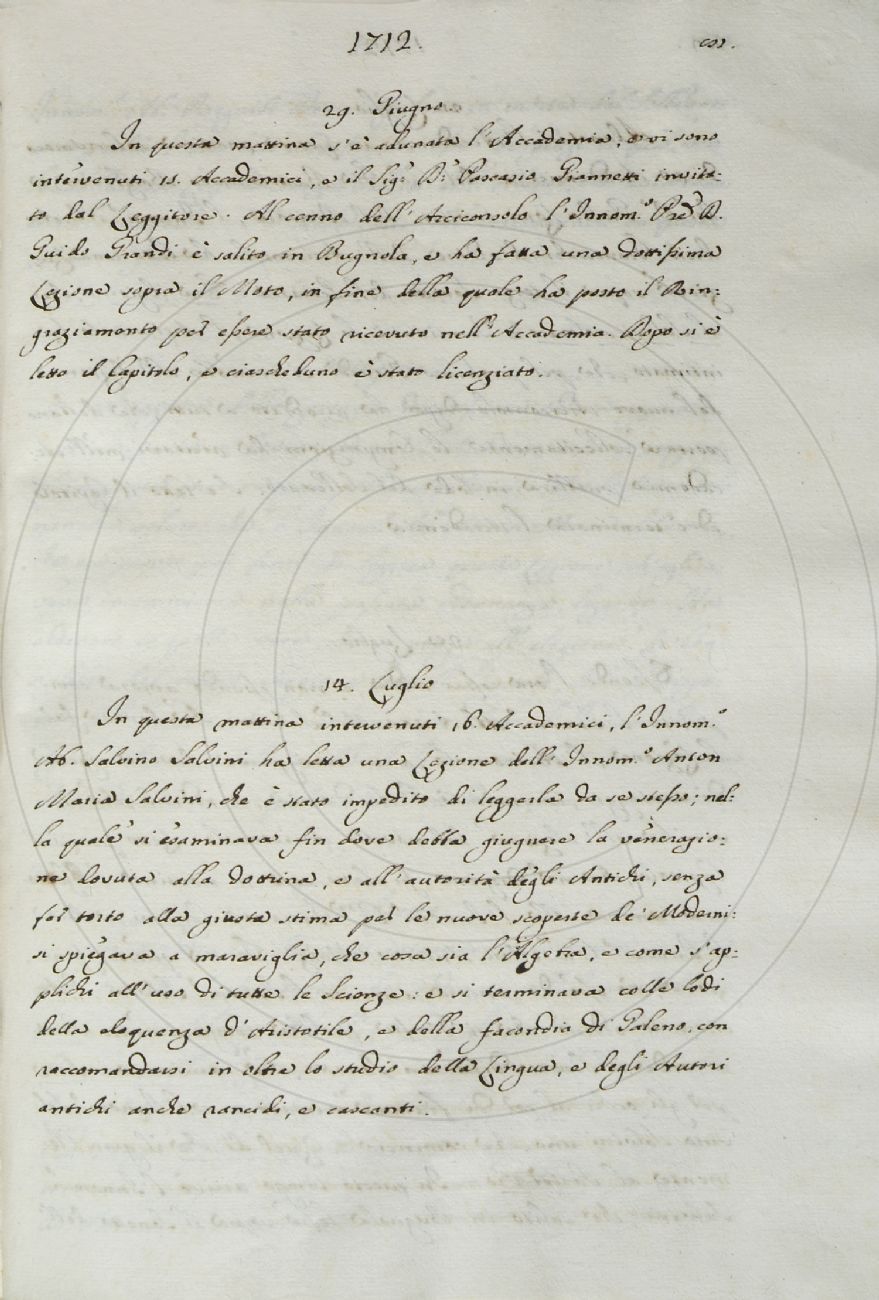 1712.
29. Giugno.
In questa mattina s'è adunata l'Accademia, e vi sono
intervenuti 15. Accademici, e il Sig.r D.r Pascasio Giannetti invita:
to dal Leggitore. Al cenno dell'Arciconsolo l'Innom.o Pře D.
Guido Grandi è salito in Bugnola, e ha fatta una dottissima
Lezione sopra il Moto, in fine della quale ha posto il Rin:
graziamento pel essere stato ricevuto nell'Accademia. Dopo si è
letto il Capitolo, e ciascheduno è stato licenziato.
14. Luglio
In questa mattina intervenuti 16. Accademici, l'Innom.o
Ab. Salvino Salvini ha letta una Lezione dell'Innom.o Anton
Maria Salvini, che è stato impedito di leggerla da se stesso; nel:
la quale si esaminava fin dove debba giugnere la venerazio:
ne dovuta alla dottrina, e all'autorità degli Antichi, senza
far torto alla giusta stima pel le nuove scoperte de' Moderni:
si spiegava a maraviglia, che cosa sia l'Algebra, e come s'ap:
plichi all'uso di tutte le Scienze: e si terminava colle lodi
della eloquenza d'Aristotile, e della facondia di Galeno, con
raccomandarsi in oltre lo studio della Lingua, e degli Autori
antichi anche rancidi, e cascanti.